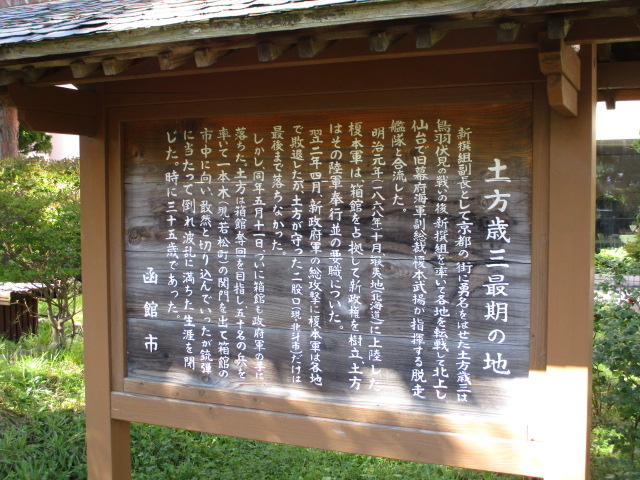 土方歳三最期の地
新撰組副長として京都の街に勇名をはせた土方歳三は
鳥羽伏見の戦いの後、新撰組を率いて各地を転戦して北上し
仙台で旧幕府海軍副総裁榎本武揚が指揮する脱走
艦隊と合流した。
明治元年(一八六八年)十月、蝦夷地(北海道)に上陸した
榎本軍は、箱館を占拠して新政権を樹立、土方
はその陸軍奉行並の要職についた。
翌二年四月、新政府軍の総攻撃に榎本軍は各地
で敗退したが、土方が守った二股口(現・北斗市)だけは
最後まで落ちなかった。
しかし、同年五月十一日、ついに箱館も政府軍の手に
落ちた。土方は箱館奪回を目指し、五十名の兵を
率いて一本木(現若松町)の関門を出て箱館の
市中に向い、敢然と切り込んでいったが、銃弾
に当たって倒れ、波乱に満ちた生涯を閉
じた。時に三十五歳であった。
函館市